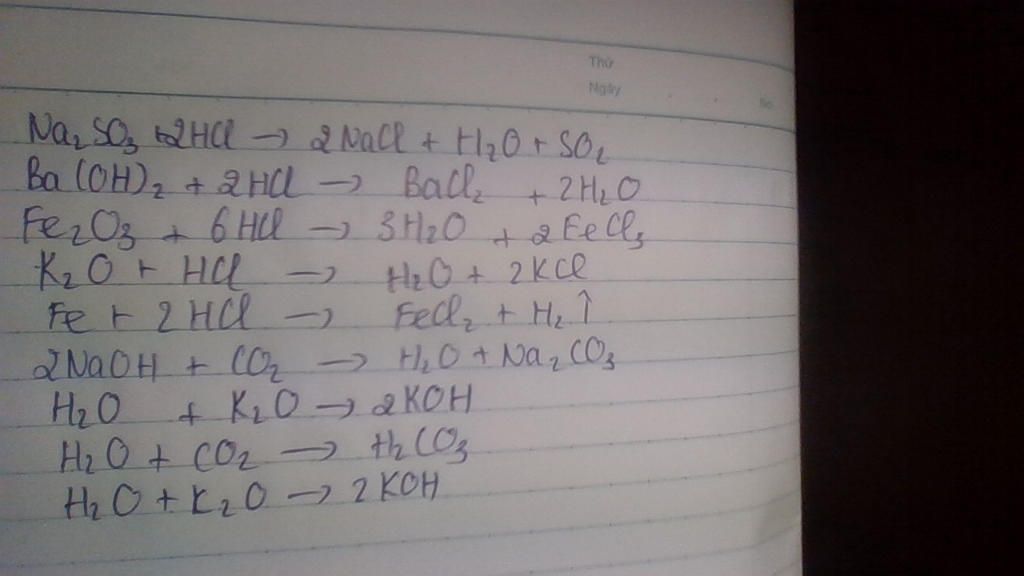 Thứ
Ngày
No
Na₂SO₃ + 2HCl → 2NaCl + H₂O + SO₂
Ba(OH)₂ + 2HCl → BaCl₂ + 2H₂O
Fe₂O₃ + 6HCl → 3H₂O + 2FeCl₃
K₂O + HCl → H₂O + 2KCl
Fe + 2HCl → FeCl₂ + H₂↑
2NaOH + CO₂ → H₂O + Na₂CO₃
H₂O + K₂O → 2KOH
H₂O + CO₂ → H₂CO₃
H₂O + K₂O → 2KOH